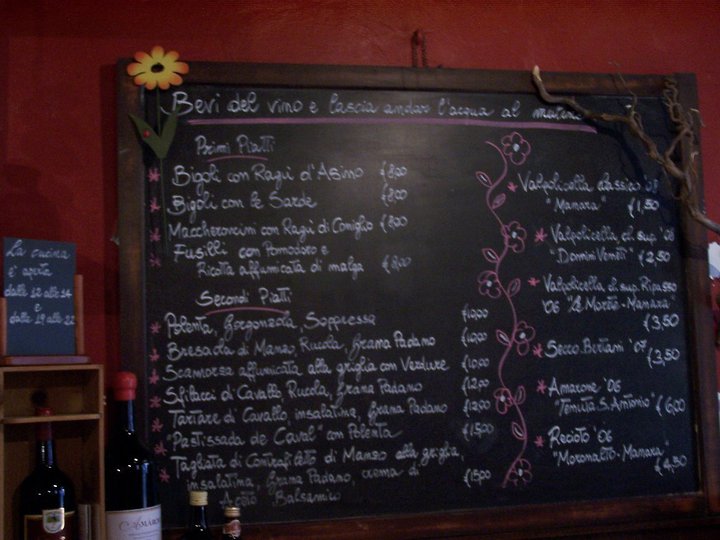 Bevi del vino e lascia andar l'acqua al mulino
Primi Piatti
Bigoli con Ragù d'Asino €8,00
Bigoli con le Sarde €8,00
Maccheroncini con Ragù di Coniglio €8,00
Fusilli con Pomodoro e
Ricotta affumicata di malga €8,00
Secondi Piatti
Polenta, Gorgonzola, Soppressa €10,00
Bresaola di Manzo, Rucola, Grana Padano €10,00
Scamorza affumicata alla griglia con Verdure €10,00
Sfilacci di Cavallo, Rucola, Grana Padano €12,00
Tartare di Cavallo insalatina, Grana Padano €12,00
"Pastissada de Caval" con Polenta €15,00
Tagliata di Controfiletto di Manzo alla griglia,
insalatina, Grana Padano, crema di
Aceto Balsamico €15,00
Valpolicella classico '08
"Manara" €1,50
Valpolicella cl. sup. '08
"Domini Veneti" €2,50
Valpolicella cl. sup. Ripasso
'06 "Le Morete - Manara"
€3,50
Secco Bertani '07
€3,50
Amarone '06
"Tenuta S. Antonio" €6,00
Recioto '06
"Moronalto - Manara"
€4,50
La cucina
è aperta
dalle 12 alle 14
e
dalle 19 alle 22